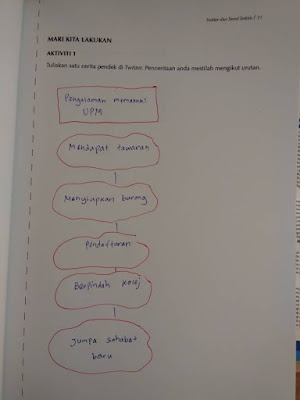 Twitter dan Trend Terkini / 11
MARI KITA LAKUKAN
AKTIVITI 1
Tuliskan satu cerita pendek di Twitter. Penceritaan anda mestilah mengikut urutan.
Pengalaman memasuki
UPM
Mendapat tawaran
Menyiapkan barang
Pendaftaran
Berpindah kolej
Jumpa sahabat
baru